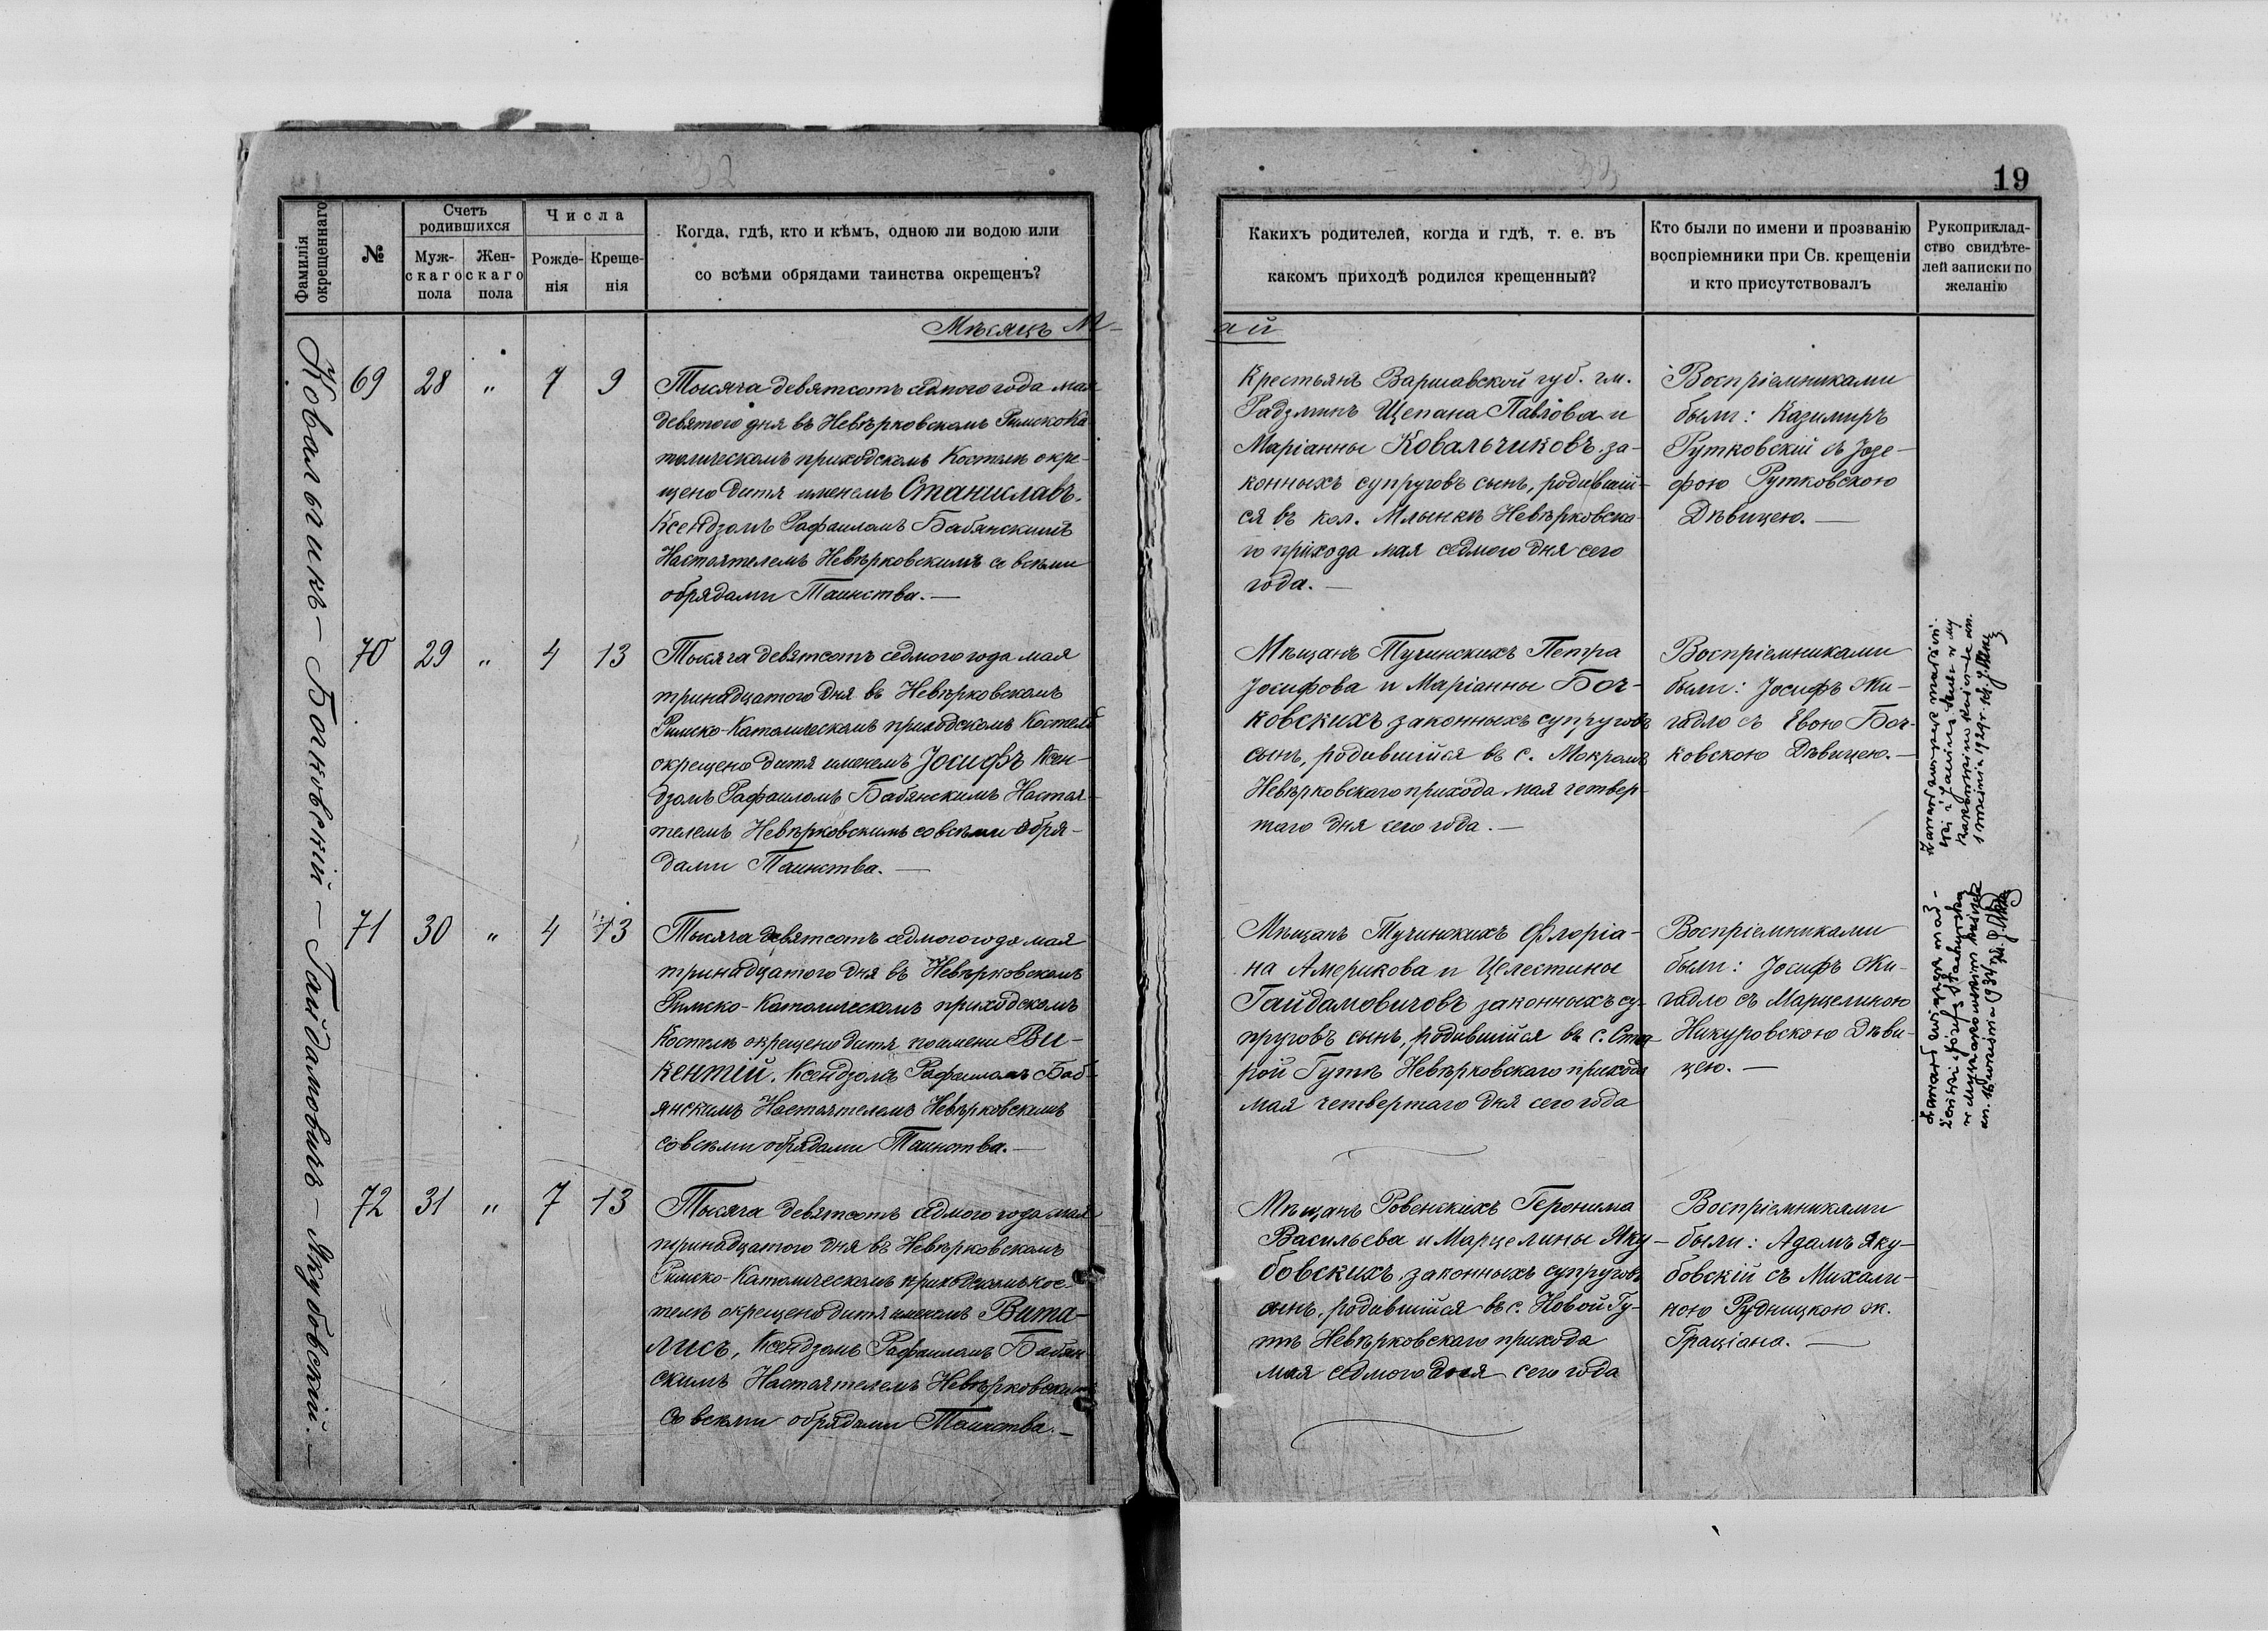 19
Фамилія
окрещеннаго
№
Счетъ
родившихся
Муж-
скаго
пола
Жен-
скаго
пола
Числа
Рожде-
нія
Креще-
нія
Когда, гдѣ, кто и кѣмъ, одною ли водою или
со всѣми обрядами таинства окрещенъ?
Какихъ родителей, когда и гдѣ, т. е. въ
какомъ приходѣ родился крещенный?
Кто были по имени и прозванію
воспріемники при Св. крещеніи
и кто присутствовалъ
Рукоприклад-
ство свидѣте-
лей записки по
желанію
Мѣсяцъ М-
ай
Ковальчикъ – Бочковскій – Гайдамовичъ – Якубовскій. –
69 28 " 7 9
Тысяча девятсотъ седмого года мая
девятого дня въ Невѣрковскомъ Римско Ка
толическомъ приходскомъ Костелѣ окре-
щено дитя именемъ Станиславъ.
Ксендзомъ Рафаиломъ Бабянскимъ
Настоятелемъ Невѣрковскимъ со всѣми
обрядами Таинства. —
Крестьянъ Варшавской губ. гм.
Радзминъ Щепана Павлова и
Маріанны Ковальчиковъ за-
конныхъ супруговъ сынъ, родившій-
ся въ кол. Млынкѣ Невѣрковска-
го прихода мая седмого дня сего
года. —
Воспріемниками
были: Казимиръ
Рутковскій съ Юзе-
фою Рутковскою
Дѣвицею. —
70 29 " 4 13
Тысяча девятсотъ седмого года мая
тринадцатого дня въ Невѣрковскомъ
Римско-Католическомъ приходскомъ Костелѣ
окрещено дитя именемъ Іосифъ Ксен-
дзомъ Рафаиломъ Бабянскимъ Настоя-
телемъ Невѣрковскимъ со всѣми обря-
дами Таинства. —
Мѣщанъ Тучинскихъ Петра
Іосифова и Маріанны Боч-
ковскихъ законныхъ супруговъ
сынъ, родившійся въ с. Мокромъ
Невѣрковскаго прихода мая четвер-
таго дня сего года. —
Воспріемниками
были: Іосифъ Жи-
гадло съ Евою Боч-
ковскою Дѣвицею. —
71 30 " 4 13
Тысяча девятсотъ седмого года мая
тринадцатого дня въ Невѣрковскомъ
Римско-Католическомъ приходскомъ
Костелѣ окрещено дитя по имени Ви-
кентій. Ксендзомъ Рафаиломъ Баб-
янскимъ Настоятелемъ Невѣрковскимъ
со всѣми обрядами Таинства. —
Мѣщанъ Тучинскихъ Флоріа-
на Америкова и Целестины
Гайдамовичовъ законныхъ су-
пруговъ сынъ, родившійся въ с. Ста-
рой Гутѣ Невѣрковскаго прихода
мая четвертаго дня сего года
Воспріемниками
были: Іосифъ Жи-
гадло съ Марцелиною
Никуровскою Дѣви-
цею. —
72 31 " 7 13
Тысяча девятсотъ седмого года мая
тринадцатого дня въ Невѣрковскомъ
Римско-Католическомъ приходскомъ кос-
телѣ окрещено дитя именемъ Вита-
лисъ, Ксендзомъ Рафаиломъ Бабян
скимъ Настоятелемъ Невѣрковскимъ
со всѣми обрядами Таинства. —
Мѣщанъ Ровенскихъ Геронима
Васильева и Марцелины Яку-
бовскихъ законныхъ супруговъ
сынъ, родившійся въ с. Новой Гу-
тѣ Невѣрковскаго прихода
мая седмого дня сего года
Воспріемниками
были: Адамъ Яку-
бовскій съ Михали-
ною Рудницкою ж.
Граціана. —